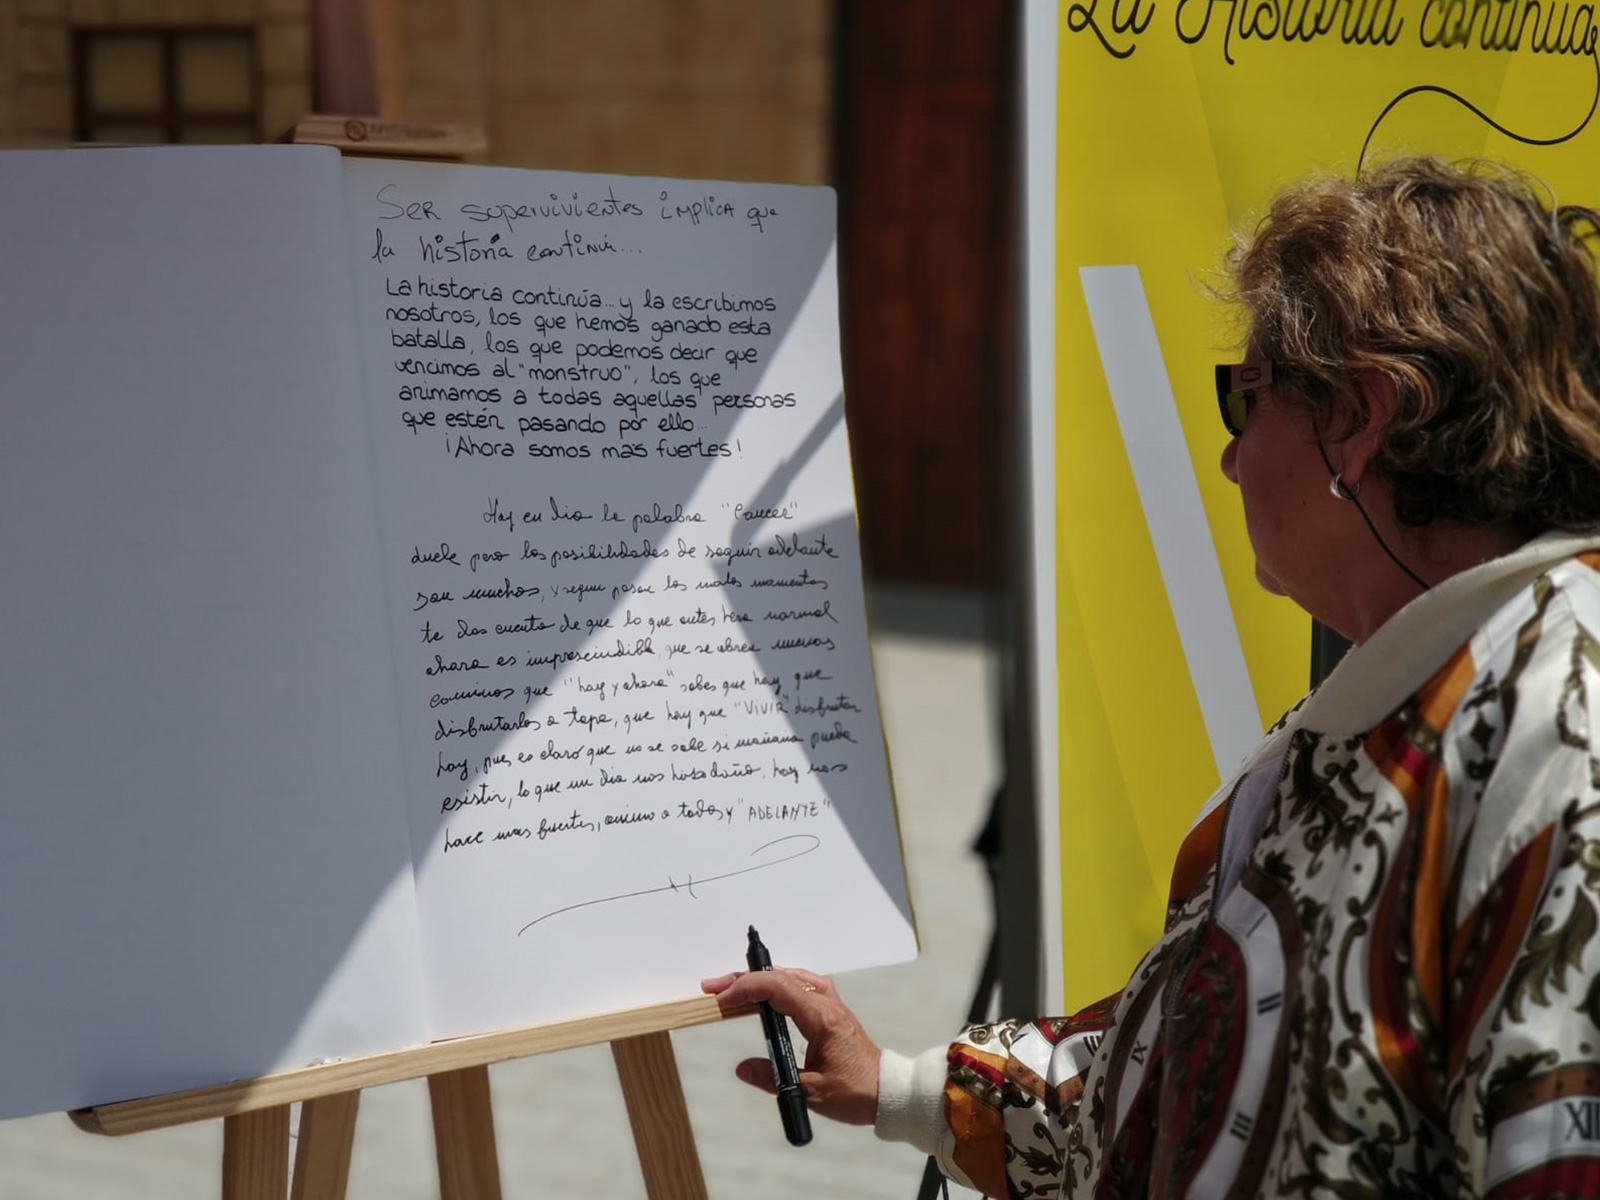 La Historia continúa
Ser supervivientes implica que
la historia continúa...
La historia continúa... y la escribimos
nosotros, los que hemos ganado esta
batalla, los que podemos decir que
vencimos al "monstruo", los que
animamos a todas aquellas personas
que estén pasando por ello...
¡Ahora somos más fuertes!
Hoy en dia la palabra "Cancer"
duele pero las posibilidades de seguir adelante
son muchas, y segun pasan los malos momentos
te das cuenta de que lo que antes hera normal
ahora es imprescindible, que se abren nuevos
caminos que "hoy y ahora" sabes que hay que
disfrutarlos a tope, que hay que "VIVIR" disfrutar
hoy, pues es claro que no se sabe si mañana puede
existir, lo que un dia nos hizo daño, hoy nos
hace mas fuertes, animo a todos y "ADELANTE"
G
IX
II
III
XII